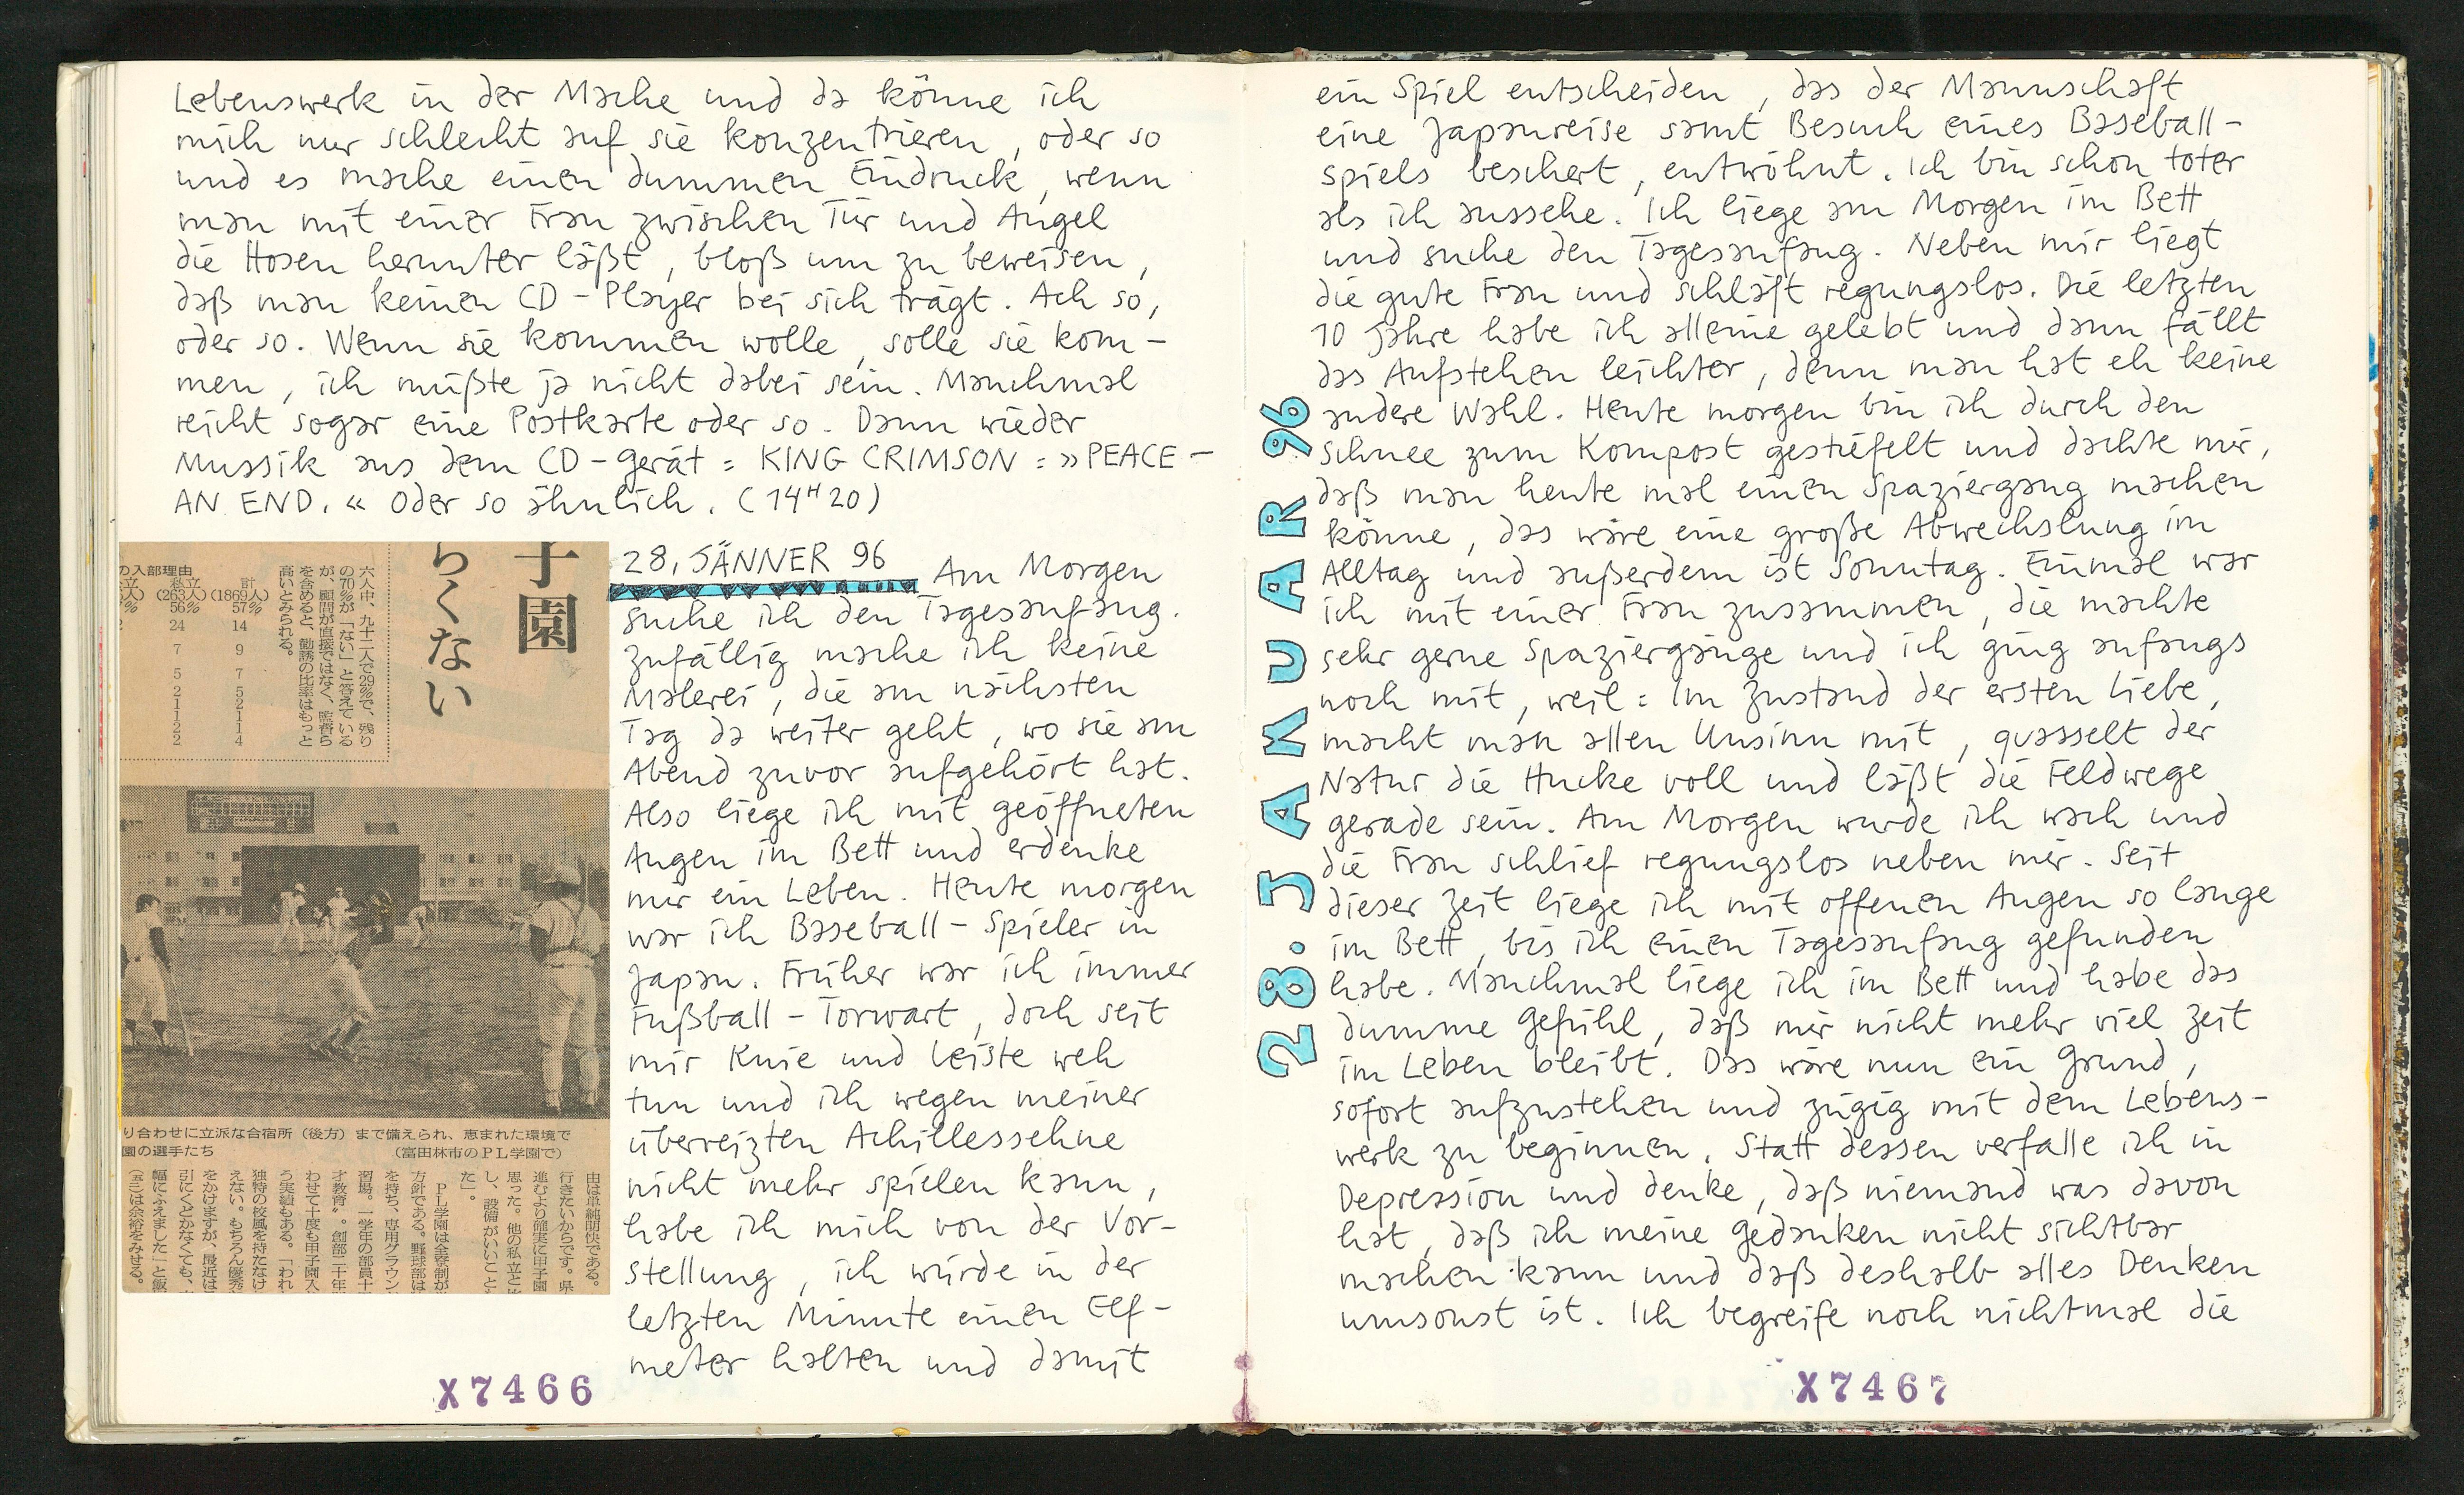 Lebenswerk in der Mache und da könne ich
mich nur schlecht auf sie konzentrieren, oder so
und es mache einen dummen Eindruck, wenn
man mit einer Frau zwischen Tür und Angel
die Hosen herunter läßt, bloß um zu beweisen,
daß man keinen CD-Player bei sich trägt. Ach so,
oder so. Wenn sie kommen wolle, solle sie kom-
men, ich müßte ja nicht dabei sein. Manchmal
reicht sogar eine Postkarte oder so. Dann wieder
Mussik aus dem CD-Gerät = KING CRIMSON = »PEACE -
AN END. « Oder so ähnlich. (14ᴴ20)
28. JÄNNER 96 Am Morgen
suche ich den Tagesanfang.
Zufällig mache ich keine
Malerei, die am nächsten
Tag da weiter geht, wo sie am
Abend zuvor aufgehört hat.
Also liege ich mit geöffneten
Augen im Bett und erdenke
mir ein Leben. Heute morgen
war ich Baseball-Spieler in
Japan. Früher war ich immer
Fußball-Torwart, doch seit
mir Knie und Leiste weh
tun und ich wegen meiner
überreizten Achillessehne
nicht mehr spielen kann,
habe ich mich von der Vor-
stellung, ich würde in der
letzten Minute einen Elf-
meter halten und damit
子園
らくない
六人中、九十二人で29%で、残り
の70%が「ない」と答えている
が、顧問が直接ではなく、監督ら
を含めると、勧誘の比率はもっと
高いとみられる。
の入部理由
立 私立 計
人) (263人) (1869人)
% 56% 57%
2 24 14
7 9
5 7
2 5
1 2
1 1
2 1
2 4
り合わせに立派な合宿所(後方)まで備えられ、恵まれた環境で
園の選手たち (富田林市のPL学園で)
由は単純明快である。
行きたいからです。県
進むより確実に甲子園
思った。他の私立と比
し、設備がいいこと
た」。
PL学園は全寮制が
方針である。野球部は
を持ち、専用グラウン
習場。一学年の部員十
才教育〟。創部二十年
わせて十度も甲子園入
う実績もある。「われ
独特の校風を持たなけ
えない。もちろん優秀
をかけますが、最近は
引にくどかなくても、
幅にふえました」と飯
は余裕をみせる。
X7466
28. JANUAR 96
ein Spiel entscheiden, das der Mannschaft
eine Japanreise samt Besuch eines Baseball-
spiels beschert, entwöhnt. Ich bin schon toter
als ich aussehe. Ich liege am Morgen im Bett
und suche den Tagesanfang. Neben mir liegt
die gute Frau und schläft regungslos. Die letzten
10 Jahre habe ich alleine gelebt und dann fällt
das Aufstehen leichter, denn man hat eh keine
andere Wahl. Heute morgen bin ich durch den
Schnee zum Kompost gestiefelt und dachte mir,
daß man heute mal einen Spaziergang machen
könne, das wäre eine große Abwechslung im
Alltag und außerdem ist Sonntag. Einmal war
ich mit einer Frau zusammen, die machte
sehr gerne Spaziergänge und ich ging anfangs
noch mit, weil = Im Zustand der ersten Liebe,
macht man allen Unsinn mit, quasselt der
Natur die Hucke voll und läßt die Feldwege
gerade sein. Am Morgen wurde ich wach und
die Frau schlief regungslos neben mir. Seit
dieser Zeit liege ich mit offenen Augen so lange
im Bett, bis ich einen Tagesanfang gefunden
habe. Manchmal liege ich im Bett und habe das
dumme Gefühl, daß mir nicht mehr viel Zeit
im Leben bleibt. Das wäre nun ein Grund,
sofort aufzustehen und zügig mit dem Lebens-
werk zu beginnen. Statt dessen verfalle ich in
Depression und denke, daß niemand was davon
hat, daß ich meine Gedanken nicht sichtbar
machen kann und daß deshalb alles Denken
umsonst ist. Ich begreife noch nichtmal die
X7467